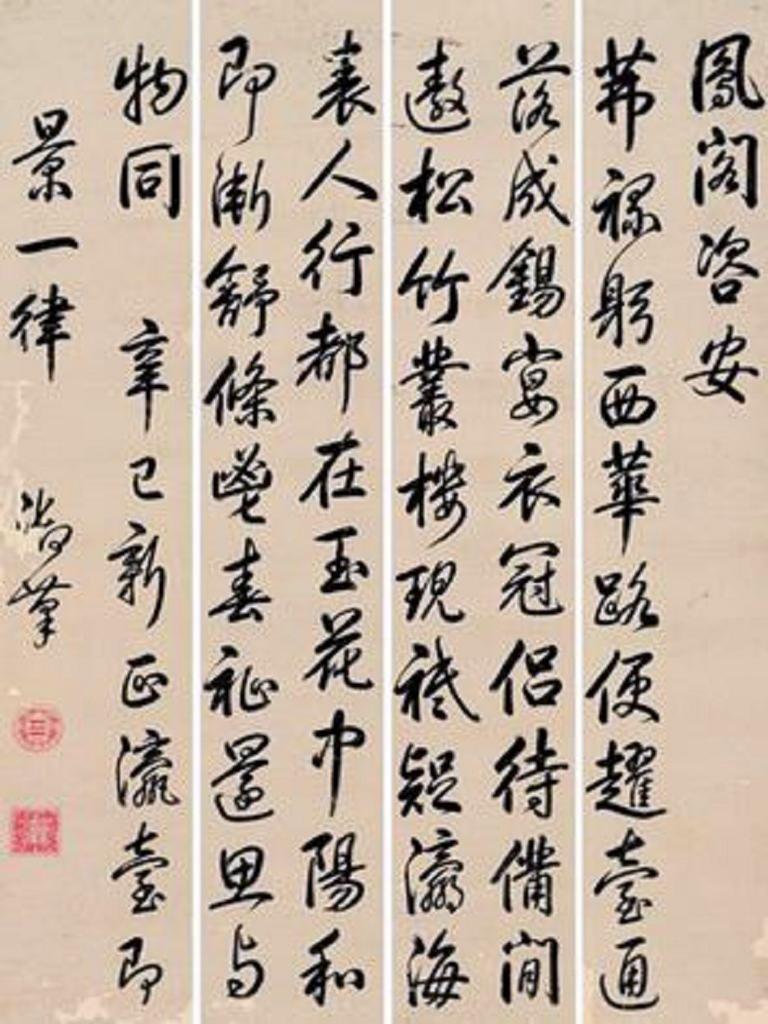 鳳閣咨安
茀祿躬西華路便趯臺通
落成錫宴衣冠侶待備閒
遨松竹叢樓現祗疑瀛海
裏人行都在玉花中陽和
即漸舒條鬯春祉還思与
物同 辛巳新正瀛臺即
景一律 御筆